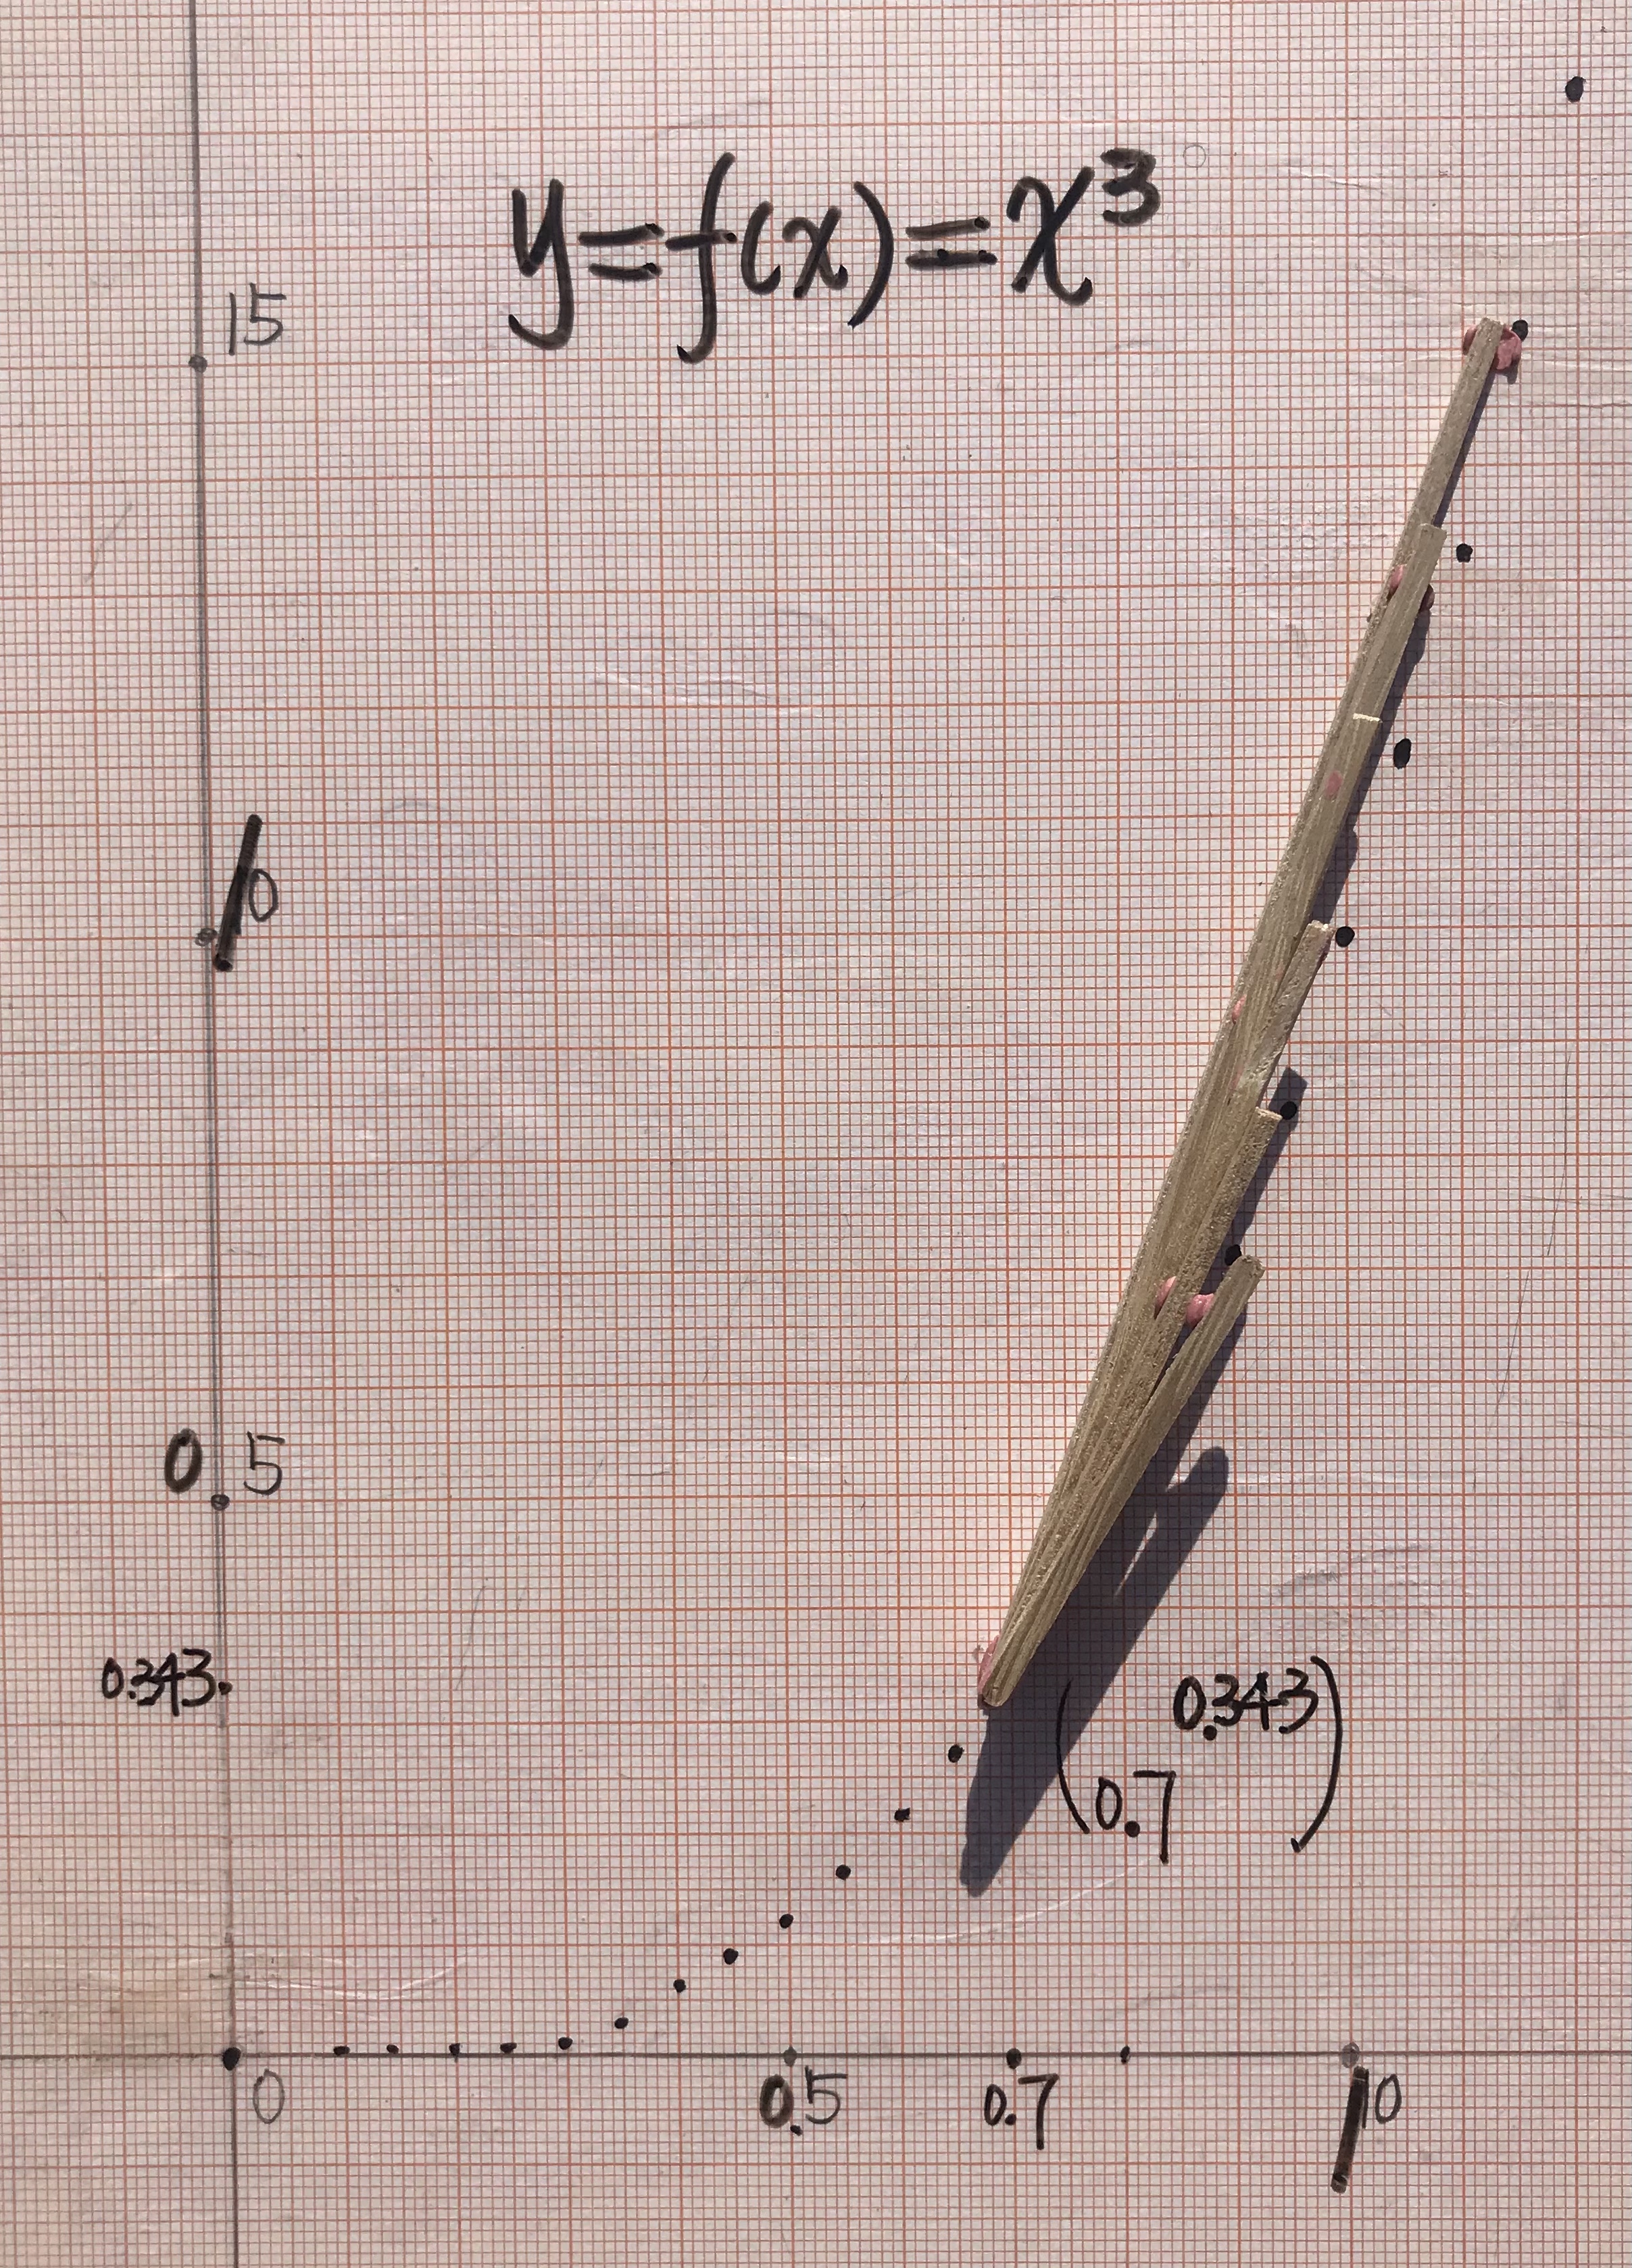 y=f(x)=x³
15
10
0.5
0.343
(0.7 0.343)
0 0.5 0.7 10